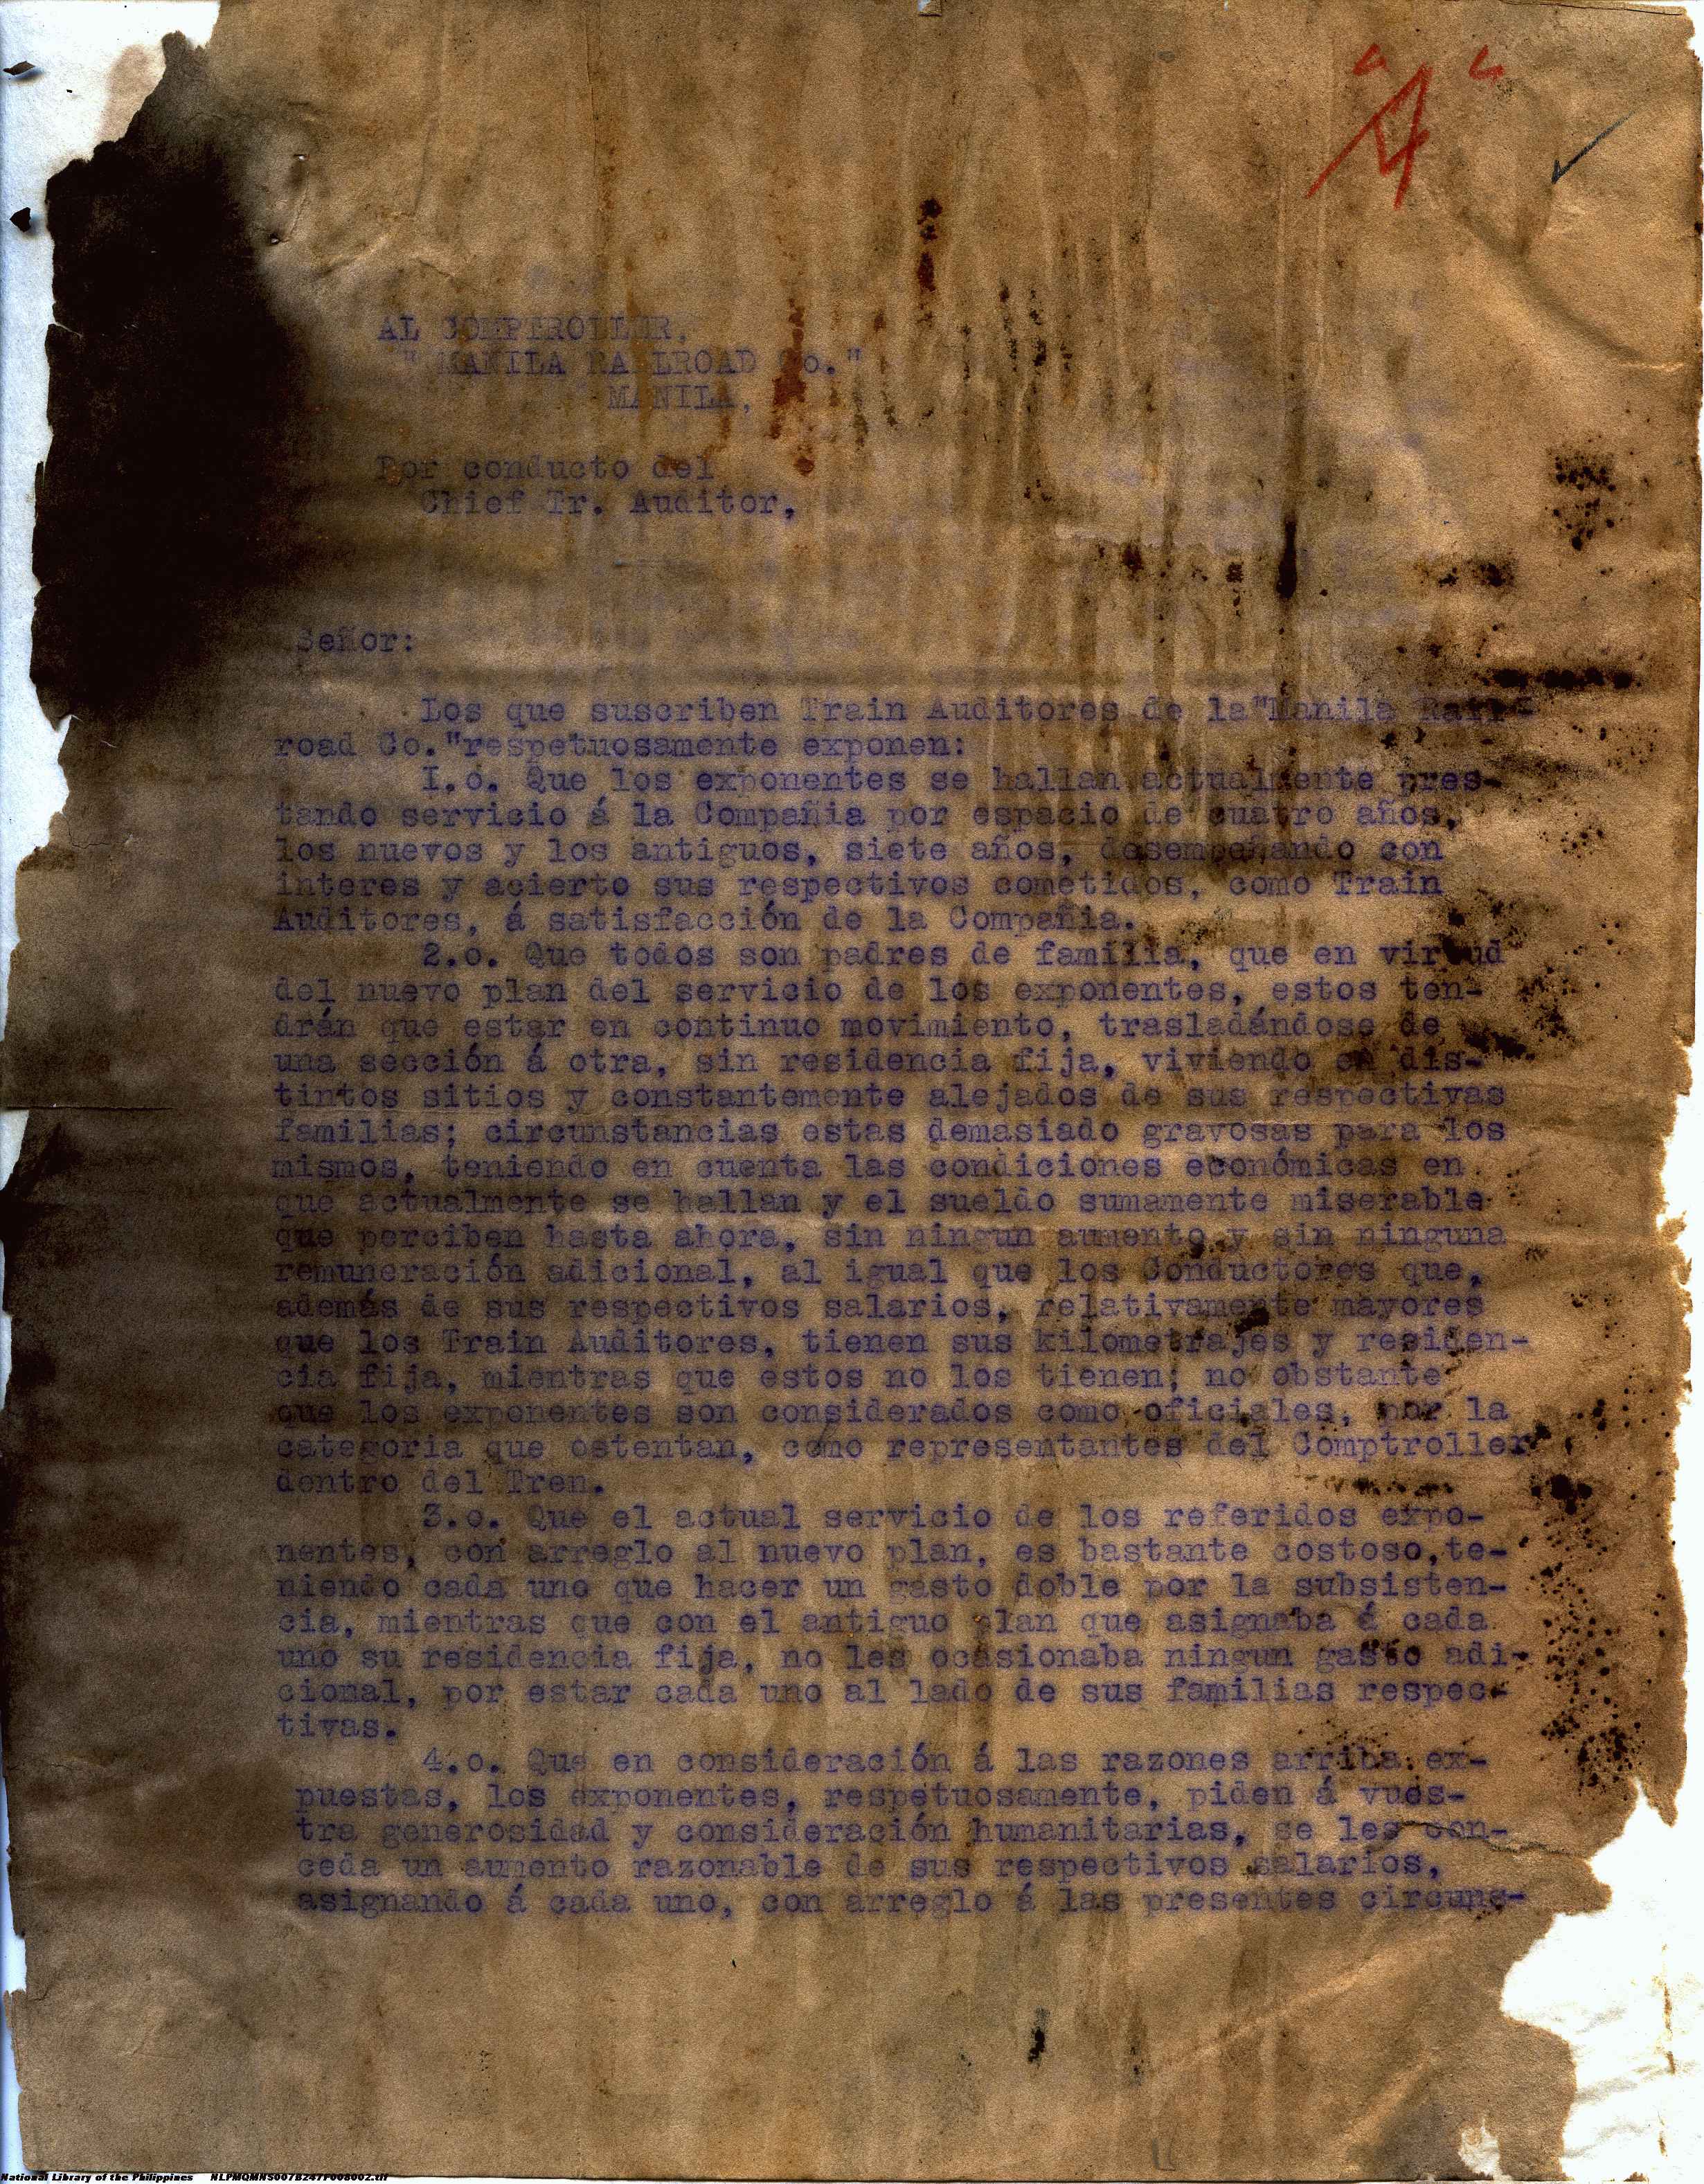 "A"
AL COMPTROLLER,
" MANILA RAILROAD Co."
MANILA,
Por conducto del
Chief Tr. Auditor,
Señor:
Los que suscriben Train Auditores de la"Manila Rail-
road Co."respetuosamente exponen:
I.o. Que los exponentes se hallan actualmente pres-
tando servicio á la Compañia por espacio de cuatro años,
los nuevos y los antiguos, siete años, desempeñando con
interes y acierto sus respectivos cometidos, como Train
Auditores, á satisfacción de la Compañia.
2.o. Que todos son padres de familia, que en virtud
del nuevo plan del servicio de los exponentes, estos ten-
drán que estar en continuo movimiento, trasladándose de
una sección á otra, sin residencia fija, viviendo en dis-
tintos sitios y constantemente alejados de sus respectivas
familias; circunstancias estas demasiado gravosas para los
mismos, teniendo en cuenta las condiciones económicas en
que actualmente se hallan y el sueldo sumamente miserable
que perciben hasta ahora, sin ningun aumento y sin ninguna
remuneración adicional, al igual que los Conductores que,
además de sus respectivos salarios, relativamente mayores
que los Train Auditores, tienen sus kilometrajes y residen-
cia fija, mientras que estos no los tienen; no obstante
que los exponentes son considerados como oficiales, por la
categoria que ostentan, como representantes del Comptroller
dentro del Tren.
3.o. Que el actual servicio de los referidos expo-
nentes, con arreglo al nuevo plan, es bastante costoso,te-
niendo cada uno que hacer un gasto doble por la subsisten-
cia, mientras que con el antiguo plan que asignaba á cada
uno su residencia fija, no les ocasionaba ningun gasto adi-
cional, por estar cada uno al lado de sus familias respec-
tivas.
4.o. Que en consideración á las razones arriba ex-
puestas, los exponentes, respetuosamente, piden á vues-
tra generosidad y consideración humanitarias, se les con-
ceda un aumento razonable de sus respectivos salarios,
asignando á cada uno, con arreglo á las presentes circuns-
National Library of the Philippines NLPMQMNS007B247F008002.tif